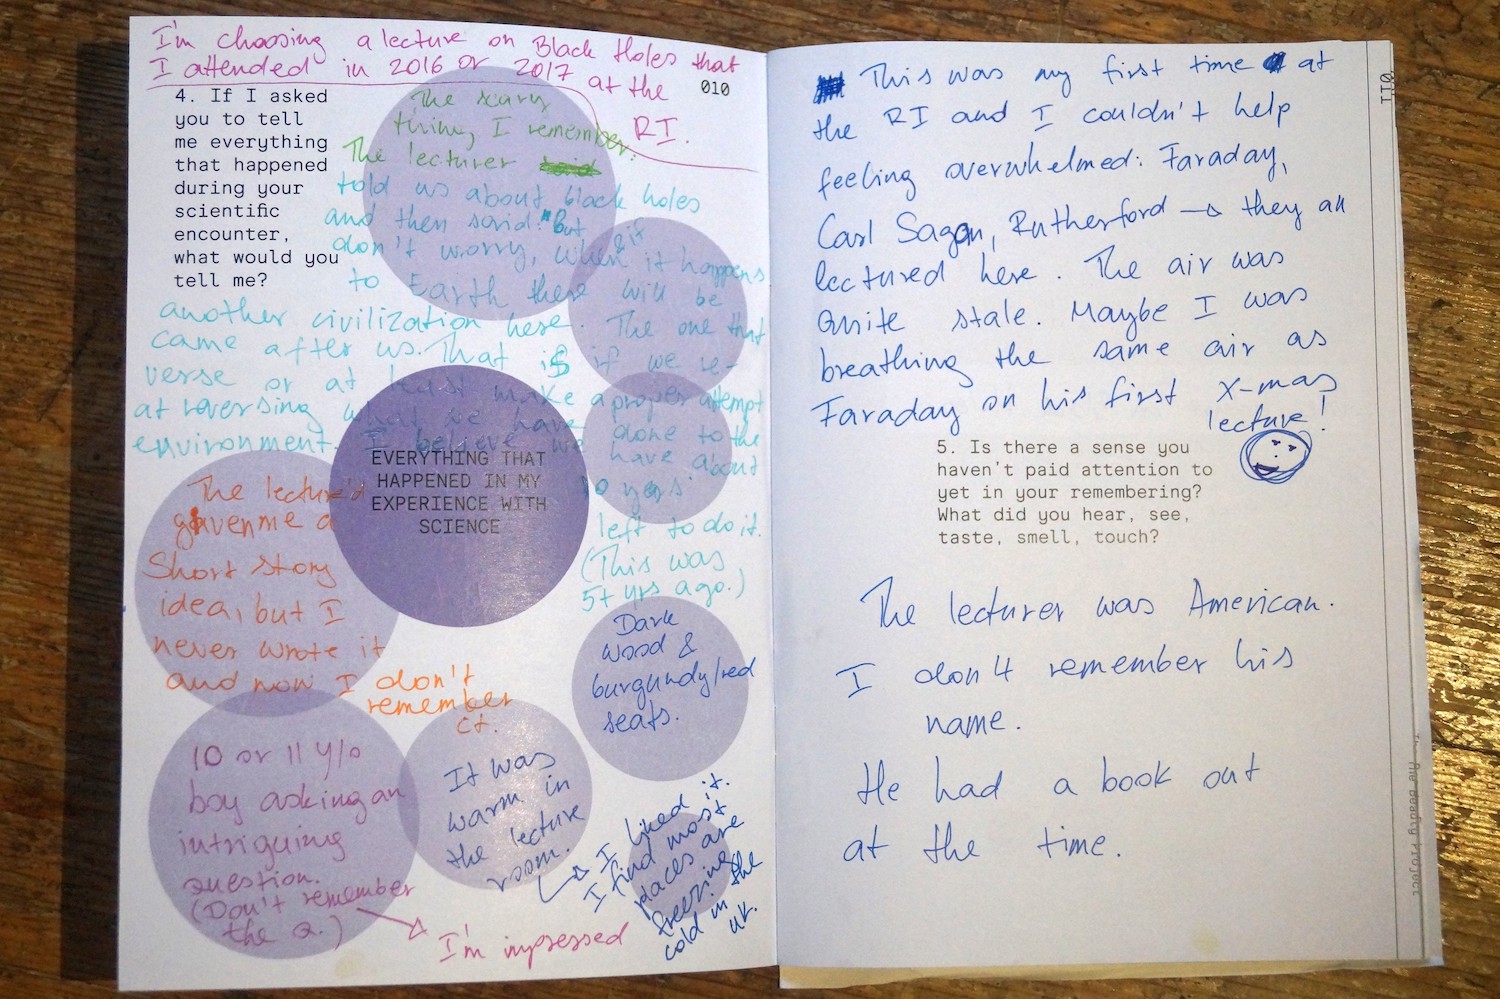 I'm choosing a lecture on Black Holes that
I attended in 2016 or 2017 at the
RI.
010
4. If I asked
you to tell
me everything
that happened
during your
scientific
encounter,
what would you
tell me?
The scary
thing I remember:
The lecturer
told us about black holes
and then said: "But
don't worry, when it happens
to Earth there will be
another civilization here. The one that
came after us. That is if we re-
verse or at least make a proper attempt
at reversing what we have done to the
environment. I believe we have about
10 yers
left to do it.
(This was
5+ yrs ago.)
EVERYTHING THAT
HAPPENED IN MY
EXPERIENCE WITH
SCIENCE
The lecture'd
given me a
Short story
idea, but I
never wrote it
and now I don't
remember
it.
Dark
wood &
burgundy/red
seats.
10 or 11 y/o
boy asking an
intriguing
question.
(Don't remember
the Q.)
I'm impressed
It was
warm in
the lecture
room.
I liked it.
I find most
places are
freezing
cold in the
UK.
This was my first time at
the RI and I couldn't help
feeling overwhelmed: Faraday,
Carl Sagan, Rutherford → they all
lectured here. The air was
Quite stale. Maybe I was
breathing the same air as
Faraday on his first X-mas
lecture!
5. Is there a sense you
haven't paid attention to
yet in your remembering?
What did you hear, see,
taste, smell, touch?
The lecturer was American.
I don't remember his
name.
He had a book out
at the time.
011